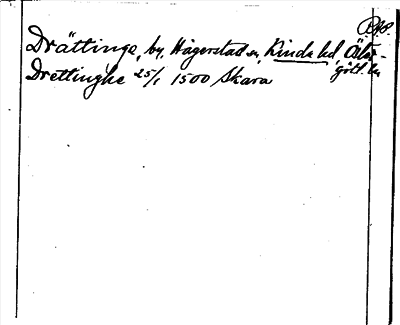 RAP.
Drättinge, by, Hägerstad sn, Kinda hd, Öster-
götl. län
Drettinghe 25/1 1500 Skara